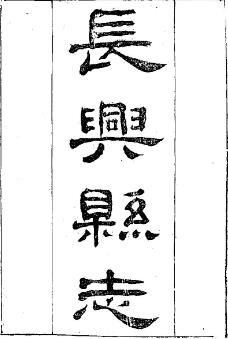 長興縣志